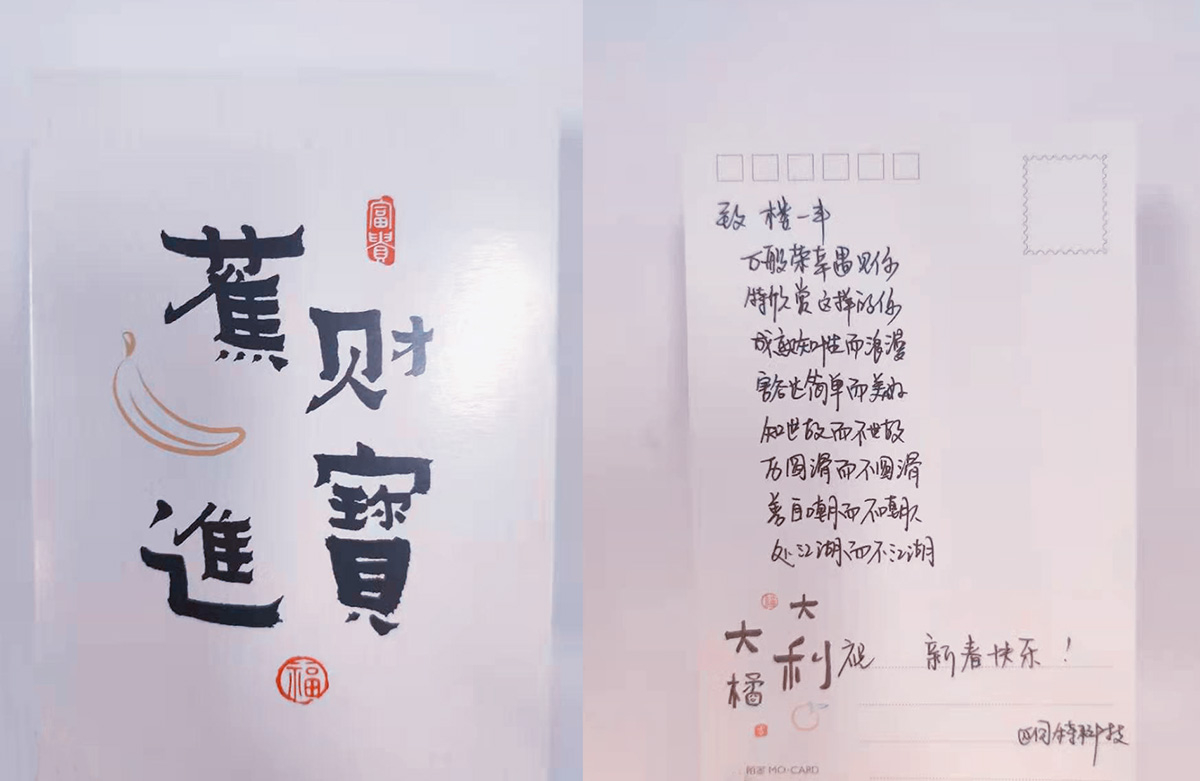 富貴
蕉财
進寶
福
致 楼一丰
万般荣幸遇见你
特欣赏这样的你
成熟知性而浪漫
豁达简单而美好
知世故而不世故
历圆滑而不圆滑
善自嘲而不嘲人
处江湖而不江湖
福
大橘
大利
祝 新春快乐！
特科技
MO-CARD